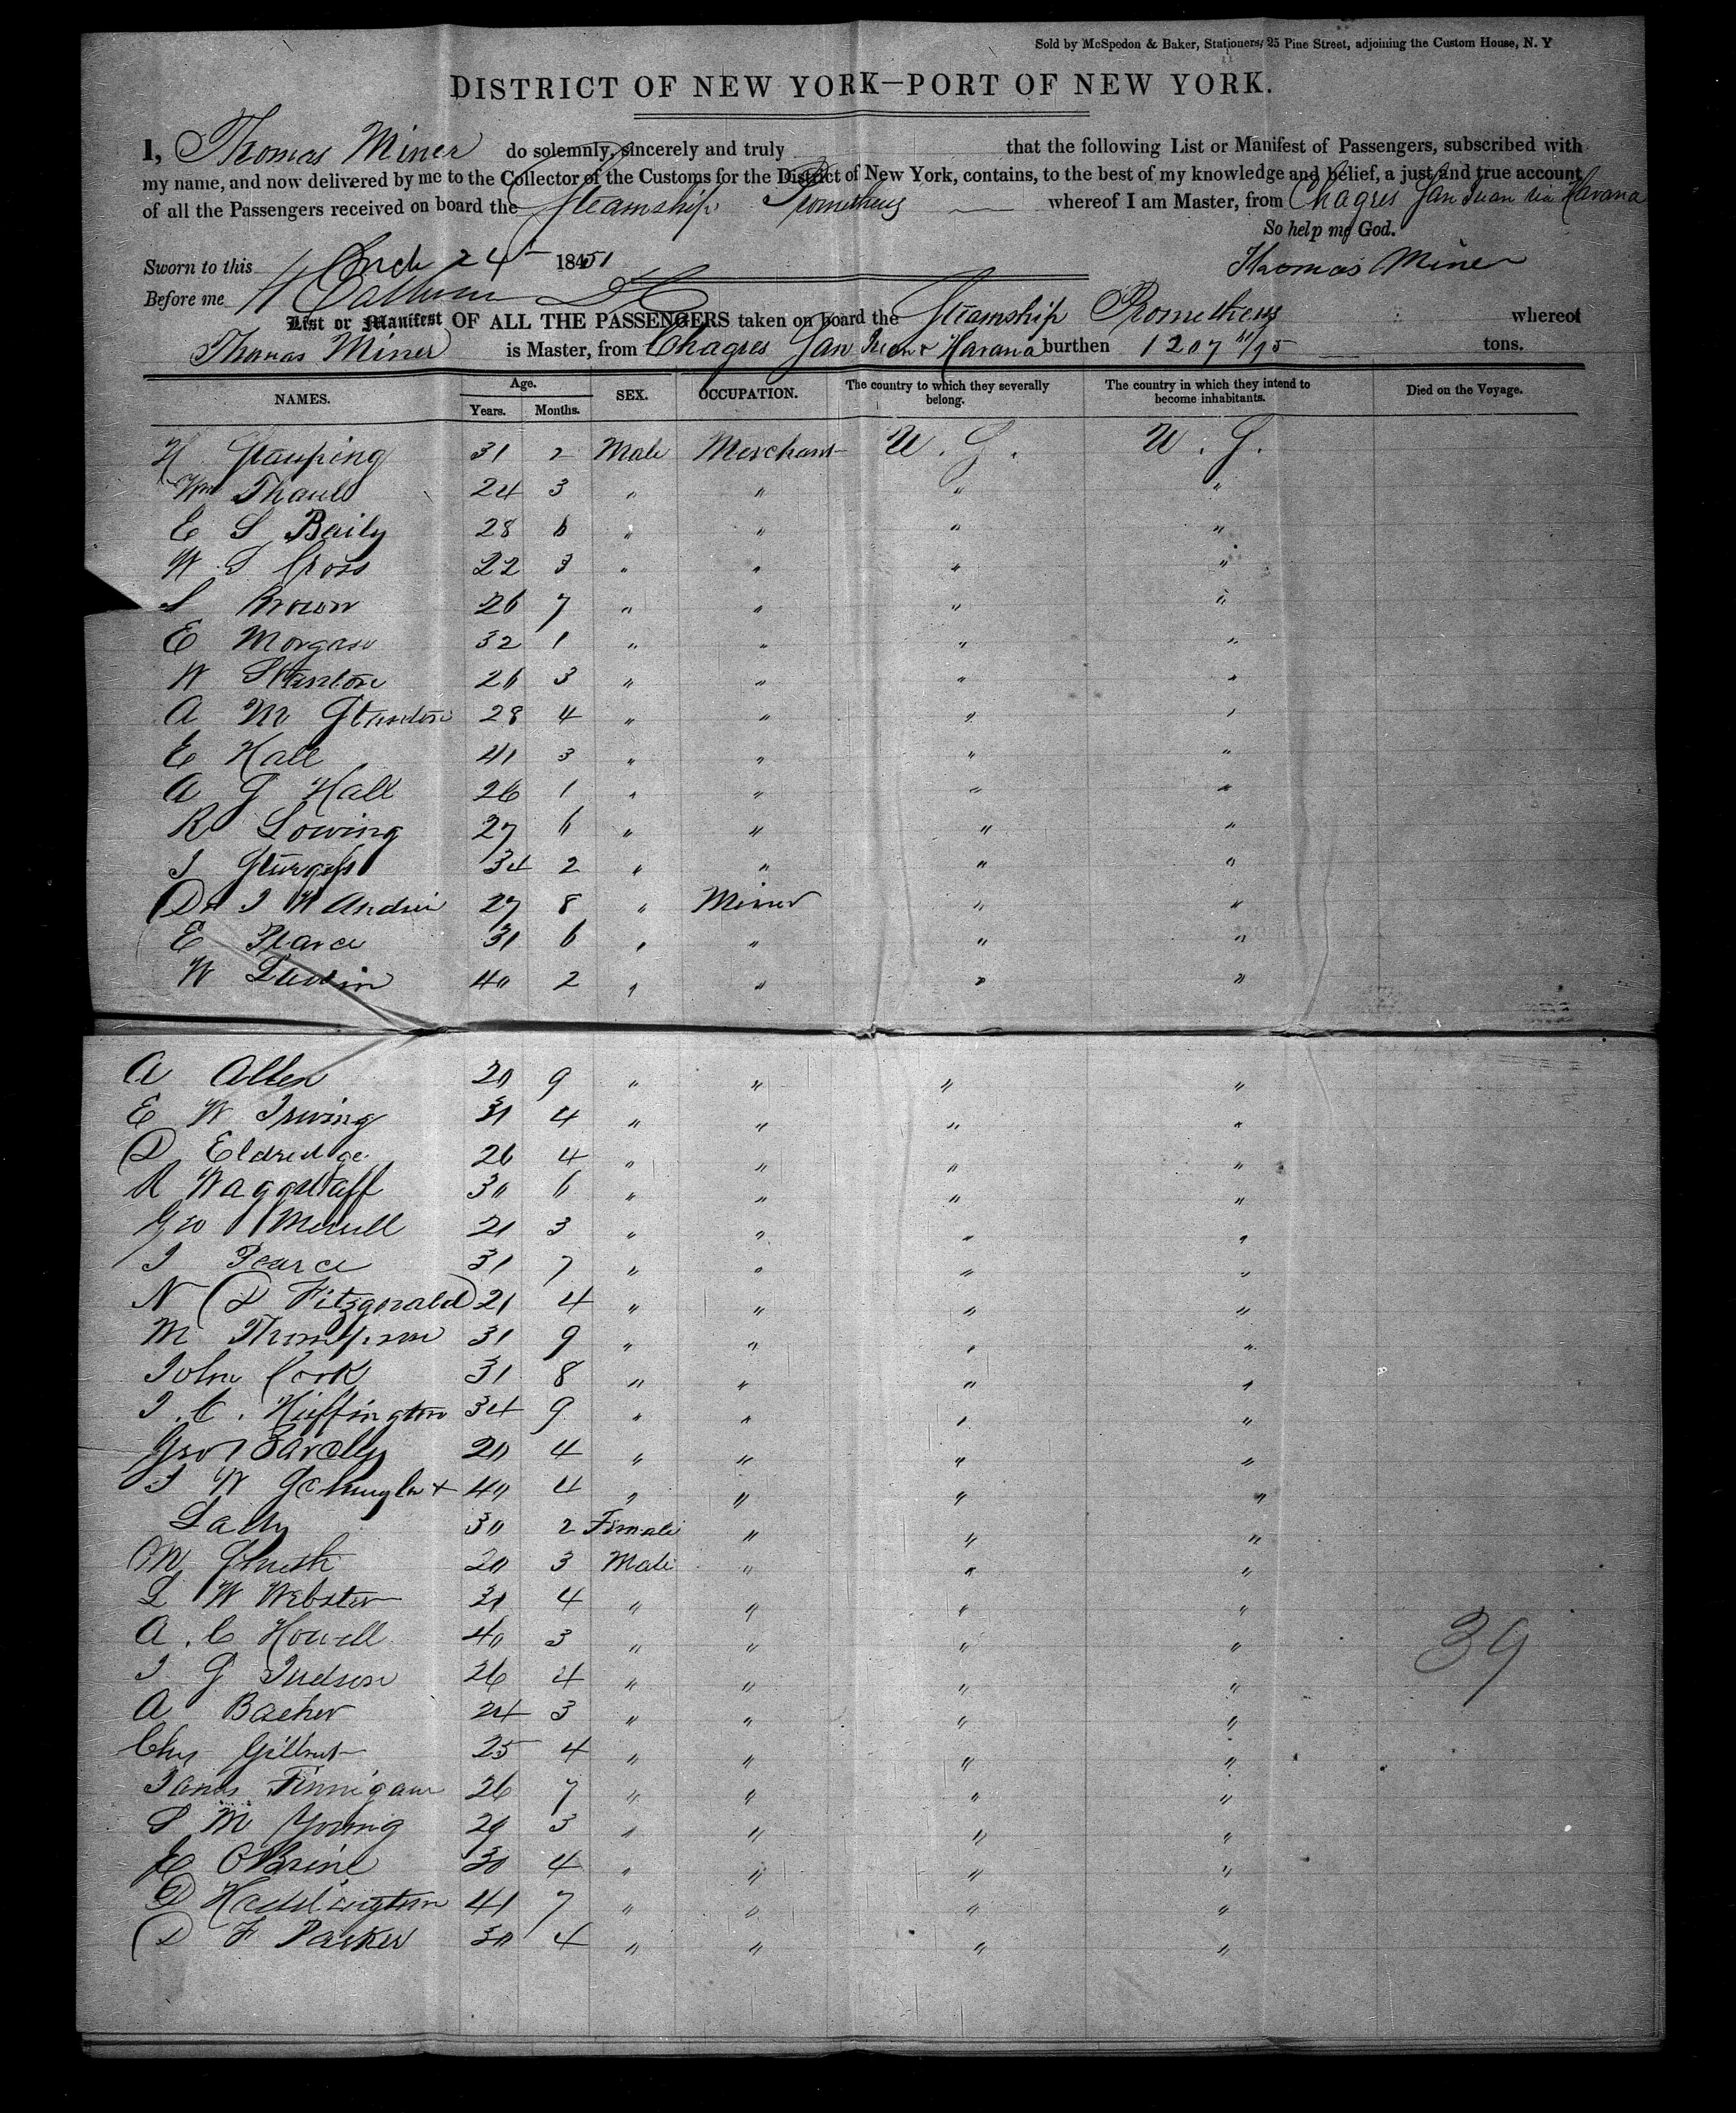 Sold by McSpedon & Baker, Stationers, 25 Pine Street, adjoining the Custom House, N. Y
DISTRICT OF NEW YORK—PORT OF NEW YORK.
I, Thomas Miner do solemnly, sincerely and truly that the following List or Manifest of Passengers, subscribed with
my name, and now delivered by me to the Collector of the Customs for the District of New York, contains, to the best of my knowledge and belief, a just and true account
of all the Passengers received on board the Steamship Prometheus whereof I am Master, from Chagres San Juan via Havana
So help me God.
Sworn to this 24 1851 Thomas Miner
Before me
List or Manifest OF ALL THE PASSENGERS taken on board the Steamship Prometheus whereof
Thomas Miner is Master, from Chagres San Juan & Havana burthen 1207 /95 tons.
NAMES. Age. Years. Months. SEX. OCCUPATION. The country to which they severally belong. The country in which they intend to become inhabitants. Died on the Voyage.
31 2 Male Merchant U. S. U. S.
Wm 24 3 " " " "
E S Baily 28 6 " " " "
W S Cross 22 3 " " " "
S Brown 26 7 " " " "
E Morgan 32 1 " " " "
W Stanton 26 3 " " " "
A M Stanton 28 4 " " " "
E Hall 41 3 " " " "
A G Hall 26 1 " " " "
R Lowing 27 6 " " " "
J Sturgess 34 2 " " " "
Dr J W 27 8 " Miner " "
E Pearce 31 6 " " " "
W 40 2 " " " "
A Allen 20 9 " " " "
E W Irwing 31 4 " " " "
D Eldredge 26 4 " " " "
R Waggstaff 30 6 " " " "
Geo Merrill 21 3 " " " "
J Pearce 31 7 " " " "
N D Fitzgerald 21 4 " " " "
M Thompson 31 9 " " " "
John Cook 31 8 " " " "
J. C. Huffington 34 9 " " " "
Geo 20 4 " " " "
J W 40 4 " " " "
Lady 30 2 Female " " "
20 3 Male " " "
L W Webster 31 4 " " " "
A. C Howell 40 3 " " " "
J G Judson 26 4 " " " "
A Bacher 24 3 " " " "
Chs 25 4 " " " "
James Finnigan 26 7 " " " "
S M Young 29 3 " " " "
E OBrine 30 4 " " " "
D 41 7 " " " "
D F Parker 30 4 " " " "
39